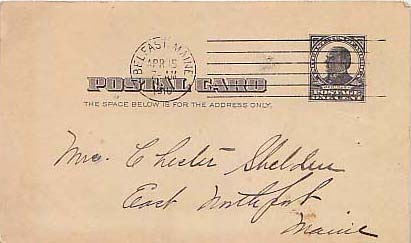 BELFAST, MAINE
APR 15
AM
1910
POSTAL CARD
THE SPACE BELOW IS FOR THE ADDRESS ONLY.
POSTAGE
ONE CENT
Mrs. Chester Sheldon
East Northport
Maine